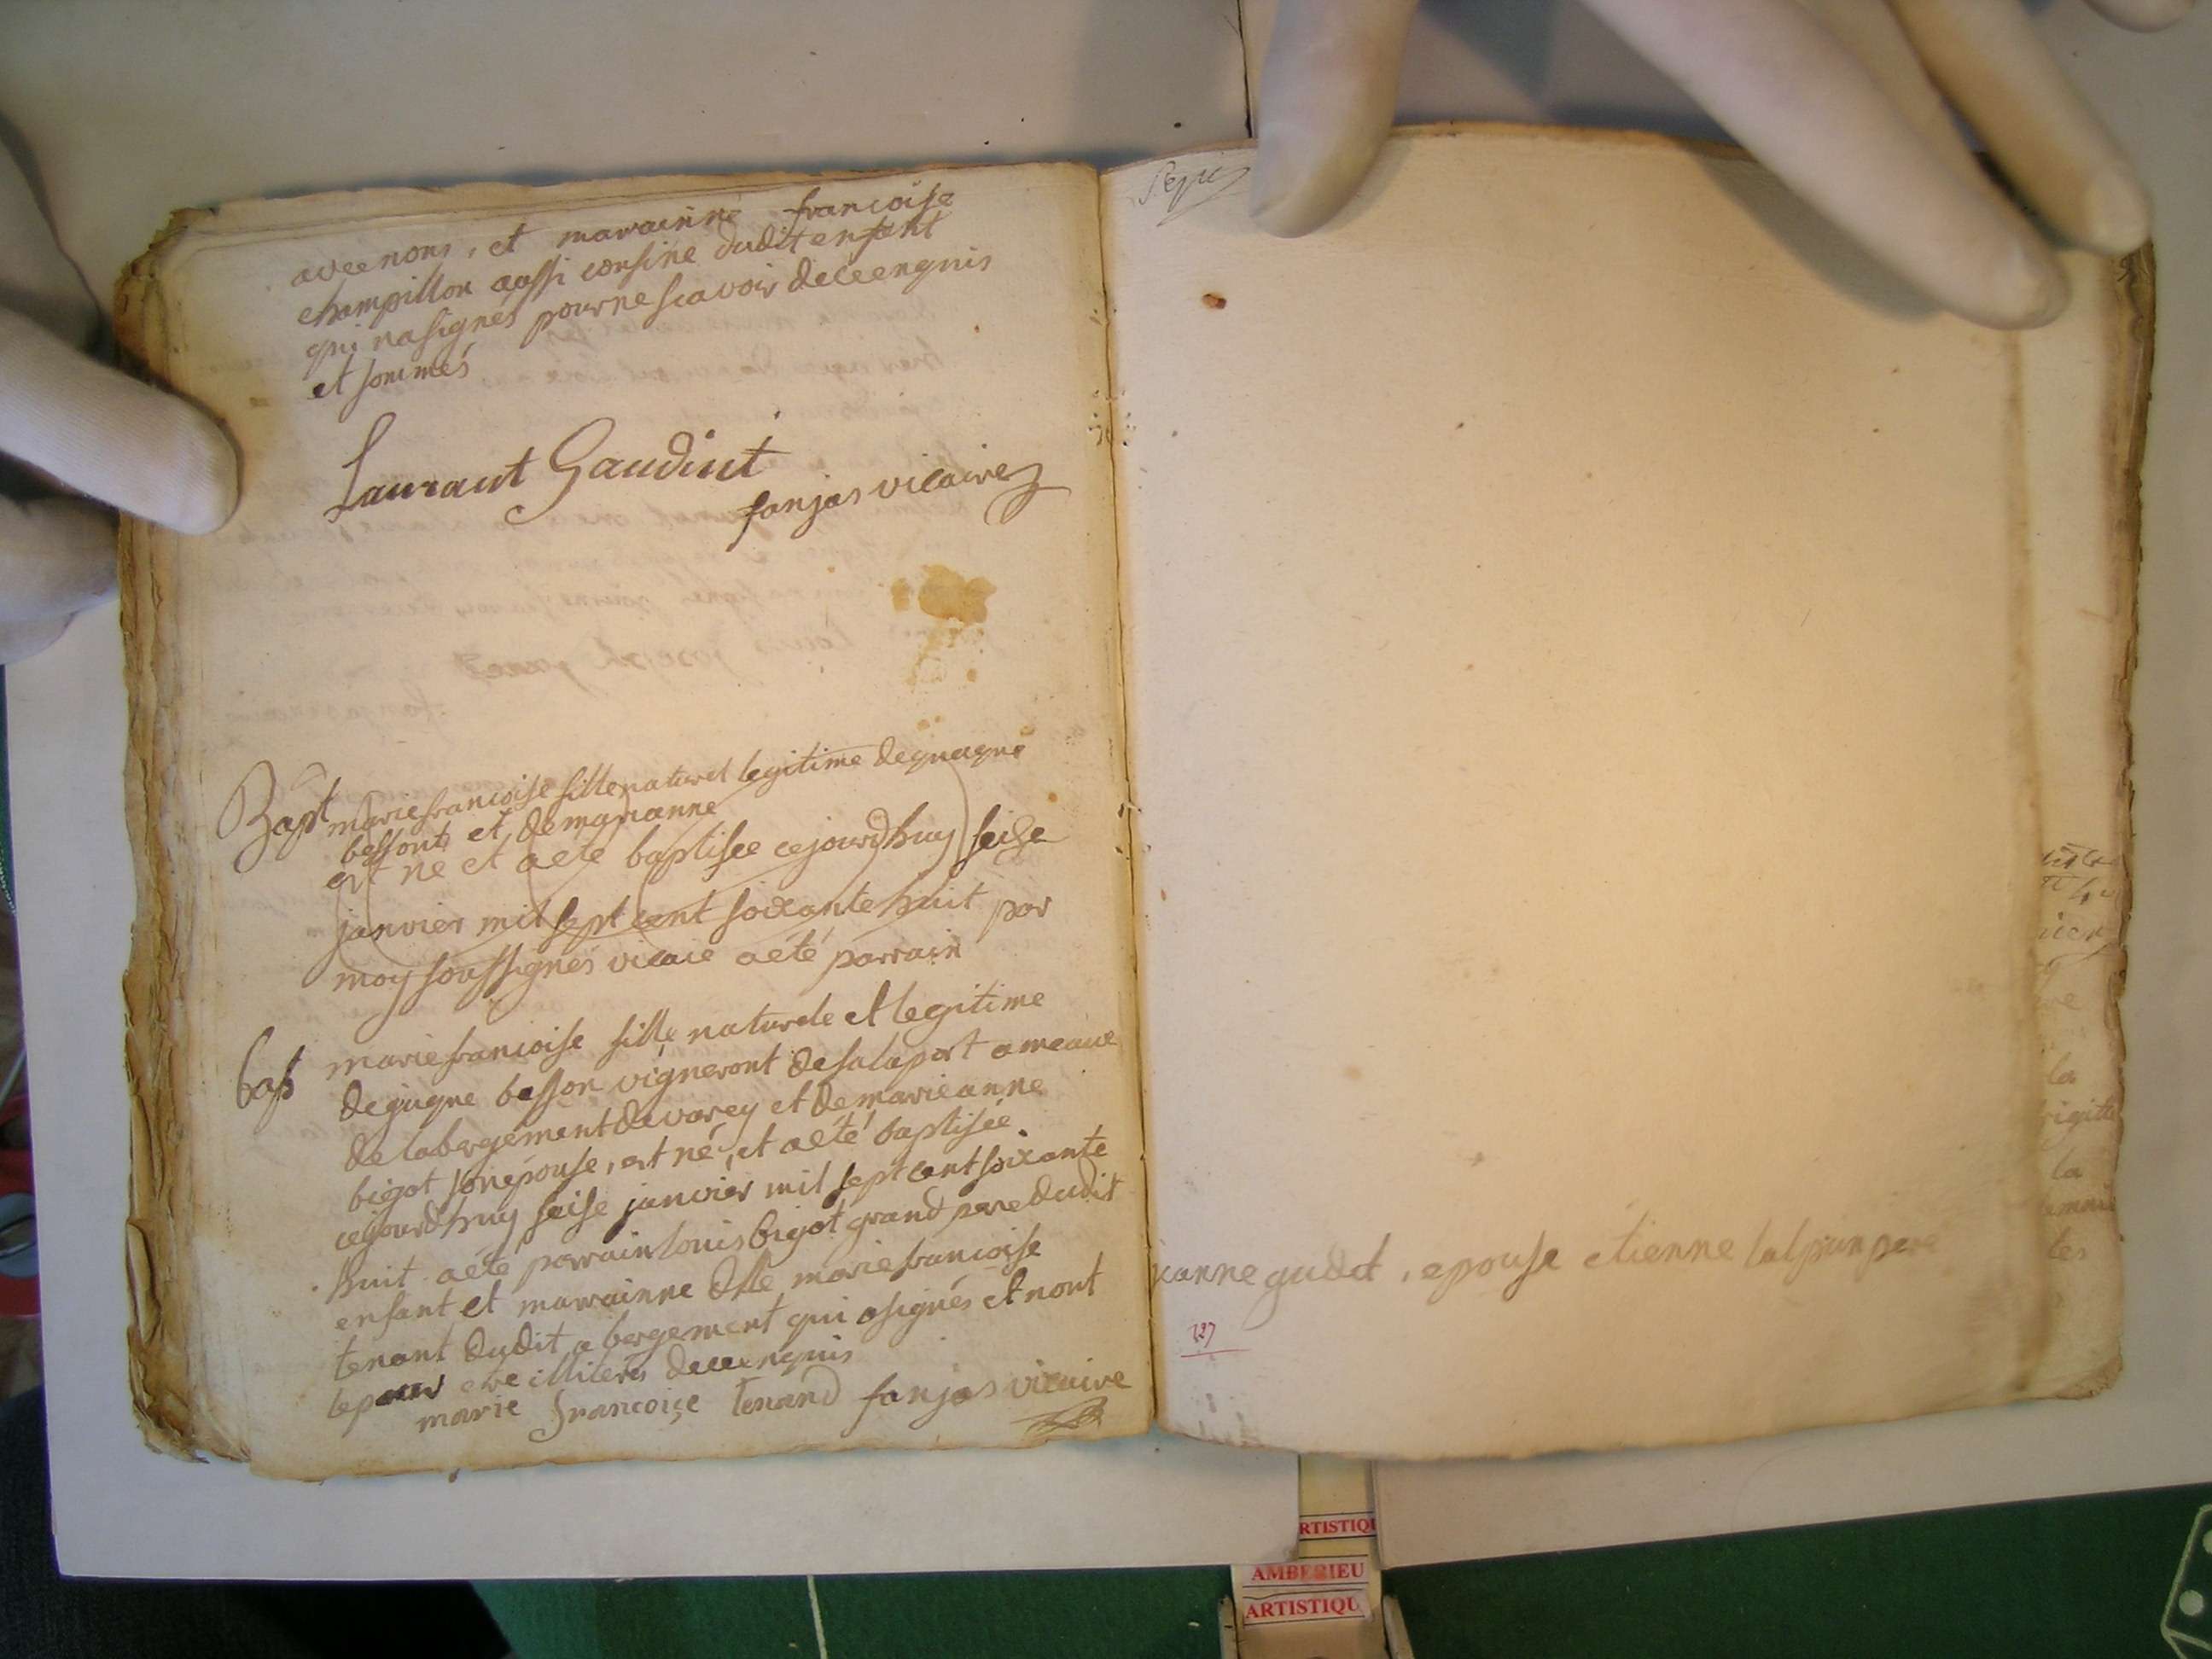 avec nons, et marainne francoise
champillon aussi cousine dudit enfant
qui na signés pour ne scavoir de ce enquis
et sommés
Laurant Gaudint
fanjas vicaire
Bapt marie francoise fille naturel legitime de guigne
bessont et de marianne
est ne et a ete baptisee cejourdhuy seize
janvier mil sept cent soixante huit par
moy soussignés vicaie a eté parrain
bapt marie francoise fille naturele et legitime
de guigne besson vigneront de salaport ameaux
de labergement de varey et de marie anne
bigot son epouse, est né, et a eté baptisée
cejourdhuy seise janvier mil sept cent soixante
huit a eté parrain louis bigot grand pere dudit
enfant et marrainne dlle marie francoise
tenant dudit abergement qui a signés et nont
le illiterés de ce enquis
marie francoise tenand fanjas vicaire
gudet, epouse etienne
127
la
la
les
RTISTIQU
AMBERIEU
ARTISTIQU